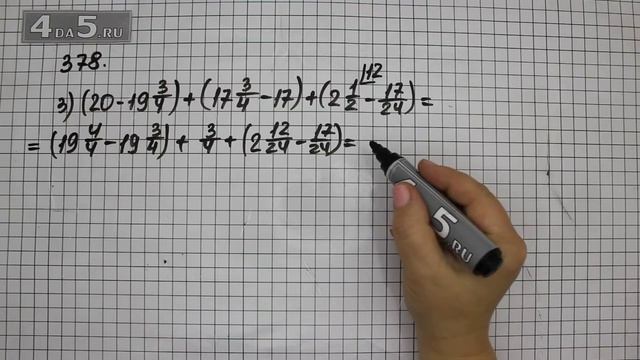 4DA5.RU
378.
3) (20 - 19 3/4) + (17 3/4 - 17) + (2 1/2 - 17/24) =
12
= (19 4/4 - 19 3/4) + 3/4 + (2 12/24 - 17/24) =
5.RU